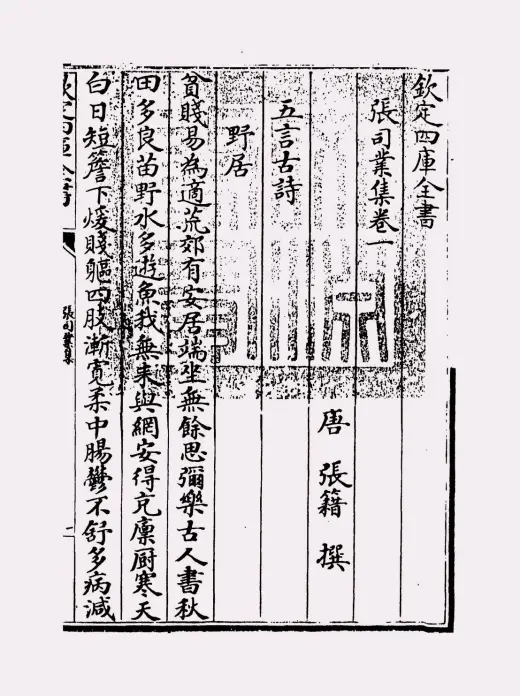 欽定四庫全書
張司業集卷一
唐 張籍 撰
五言古詩
野居
貧賤易為適荒郊有安居端坐無餘思彌樂古人書秋
田多良苗野水多遊魚我無耒與網安得充廩厨寒天
白日短簷下煖賤軀四肢漸寬柔中腸鬱不舒多病減
欽定四庫全書
張司業集